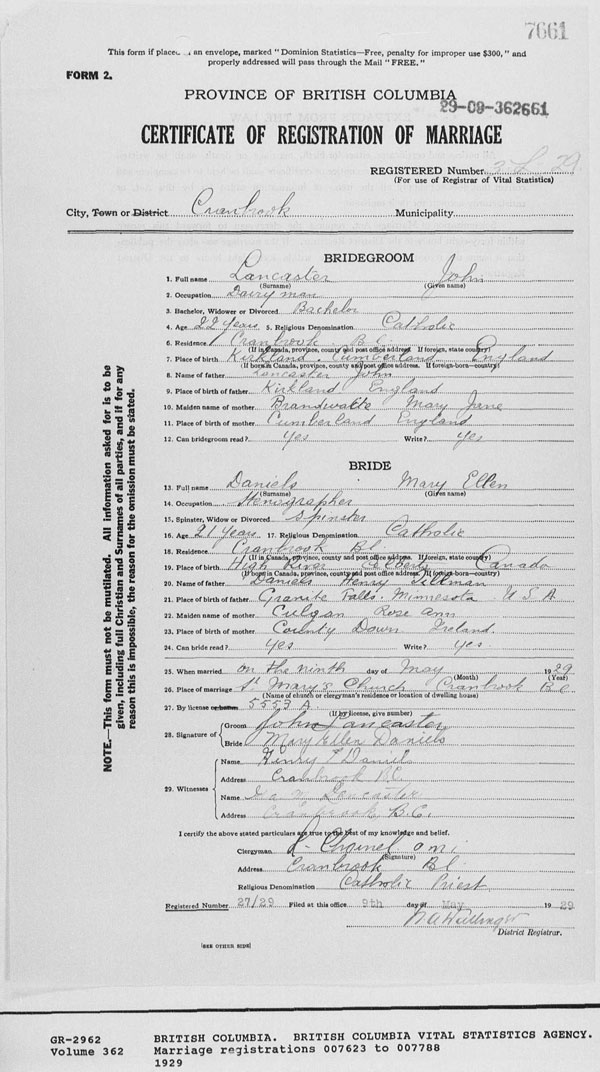 7661
This form if placed an envelope, marked "Dominion Statistics—Free, penalty for improper use $300," and
properly addressed will pass through the Mail "FREE."
FORM 2.
PROVINCE OF BRITISH COLUMBIA
29-09-362661
CERTIFICATE OF REGISTRATION OF MARRIAGE
REGISTERED Number 29
(For use of Registrar of Vital Statistics)
City, Town or District Cranbrook Municipality
BRIDEGROOM
1. Full name Lancaster John
(Surname) (Given name)
2. Occupation Dairyman
3. Bachelor, Widower or Divorced Bachelor
4. Age 22 years 5. Religious Denomination Catholic
6. Residence Cranbrook B.C.
(If in Canada, province, county and post office address. If foreign, state country)
7. Place of birth Kirkland Cumberland England
(If born in Canada, province, county and post office address. If foreign-born—country)
8. Name of father Lancaster John
9. Place of birth of father Kirkland England
10. Maiden name of mother Brandwatte Mary Jane
11. Place of birth of mother Cumberland England
12. Can bridegroom read? yes Write? yes
BRIDE
13. Full name Daniels Mary Ellen
(Surname) (Given name)
14. Occupation Stenographer
15. Spinster, Widow or Divorced Spinster
16. Age 21 years 17. Religious Denomination Catholic
18. Residence Cranbrook B.C.
(If in Canada, province, county and post office address. If foreign, state country)
19. Place of birth High River Alberta Canada
(If born in Canada, province, county and post office address. If foreign-born—country)
20. Name of father Daniels Henry Tillman
21. Place of birth of father Granite Falls. Minnesota U.S.A
22. Maiden name of mother Culgan Rose Ann
23. Place of birth of mother County Down Ireland.
24. Can bride read? yes Write? yes.
25. When married on the ninth day of May 1929
(Month) (Year)
26. Place of marriage St Mary's Church Cranbrook B.C
(Name of church or clergyman's residence or location of dwelling house)
27. By license or banns 5553 A.
(If by license, give number)
28. Signature of Groom John Lancaster
Bride Mary Ellen Daniels
29. Witnesses Name Henry T Daniels
Address Cranbrook B.C.
Name Lancaster
Address Cranbrook, B.C.
I certify the above stated particulars are true to the best of my knowledge and belief.
Clergyman
(Signature)
Address Cranbrook B.C.
Religious Denomination Catholic Priest
Registered Number 27/29 Filed at this office 9th day of May 1929
District Registrar.
[SEE OTHER SIDE]
NOTE.—This form must not be mutilated. All information asked for is to be
given, including full Christian and Surnames of all parties, and if for any
reason this is impossible, the reason for the omission must be stated.
GR-2962 BRITISH COLUMBIA. BRITISH COLUMBIA VITAL STATISTICS AGENCY.
Volume 362 Marriage registrations 007623 to 007788
1929